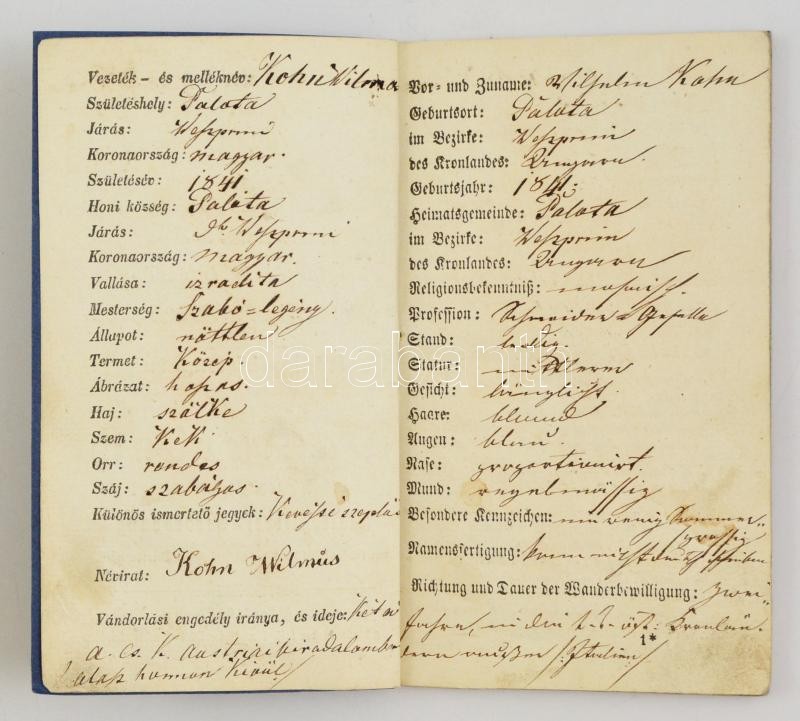 Vezeték – és melléknév: Kohn Wilmos
Születéshely: Palota
Járás: Veszprim
Koronaország: magyar.
Születésév: 1841
Honi község: Palota
Járás: Veszprim
Koronaország: magyar.
Vallása: izraelita
Mesterség: Szabó=legény.
Állapot: nőttlen
Termet: Közép.
Ábrázat: hopas.
Haj: szőlke
Szem: Kék
Orr: rendes
Száj: szabályos.
Különös ismertető jegyek: Kevéssé szeplős
Névirat: Kohn Wilmus
Vándorlási engedély iránya, és ideje: Két év
a. cs. K. austriai birodalomban
Vor= und Zuname: Wilhelm Kohn
Geburtsort: Palota
im Bezirke: Weszprim
des Kronlandes: Ungarn.
Geburtsjahr: 1841.
Heimatsgemeinde: Palota
im Bezirke: Weszprim
des Kronlandes: Ungarn
Religionsbekenntniß: mosaisch.
Profession: Schneider=Geselle
Stand: ledig.
Statur: mittlerer
Gesicht: länglicht.
Haare: blond
Augen: blau.
Nase: proportionirt.
Mund: regelmässig
Besondere Kennzeichen: ein wenig Sommer=
sprossig
Namensfertigung: kann nicht deutsch schreiben
Richtung und Dauer der Wanderbewilligung: Zwei
Jahre, in die k. k. öst: Kronlän=
dern außer /: Italien /
1*
darabanth